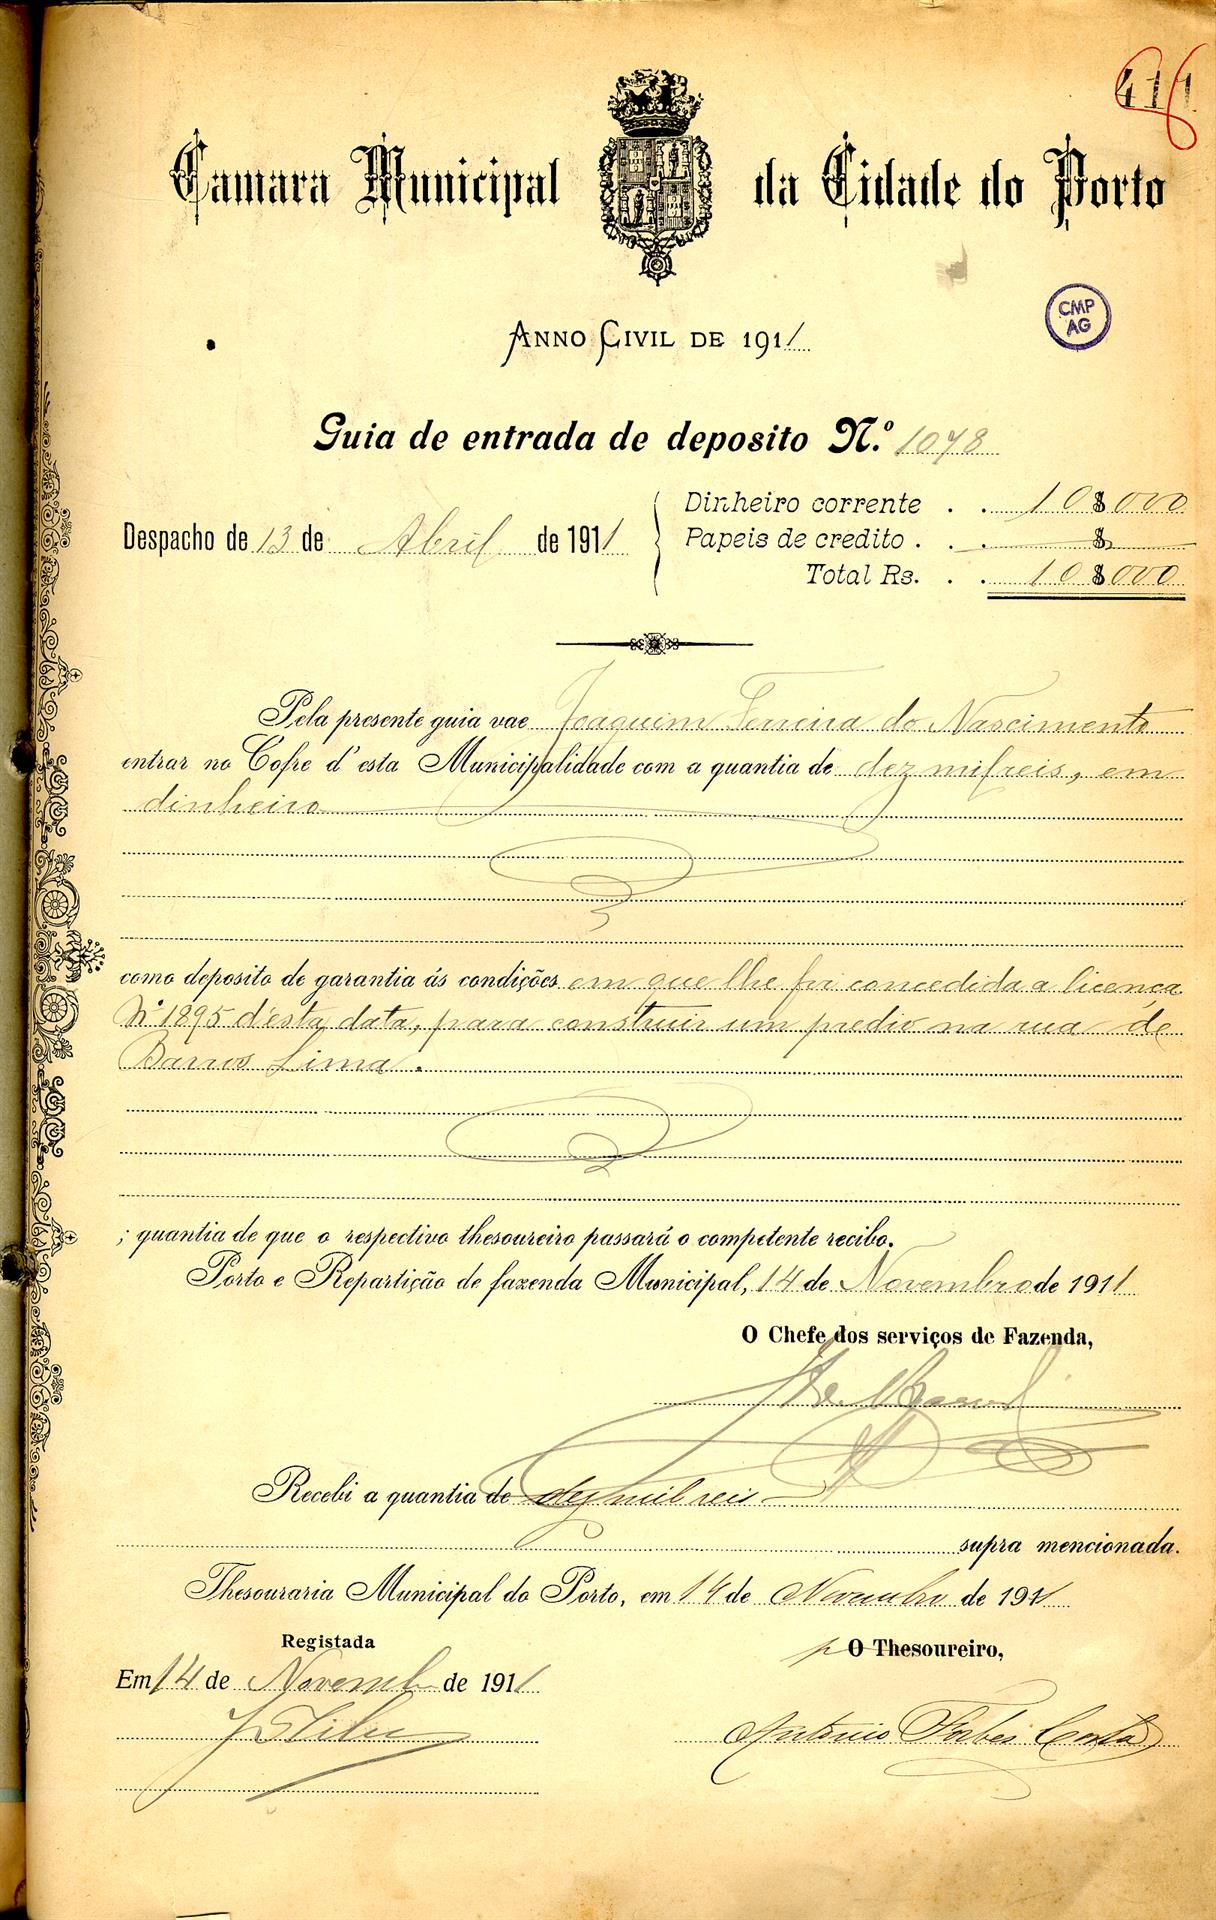 411
Camara Municipal da Cidade do Porto
CMP
AG
Anno Civil de 1911
Guia de entrada de deposito N.º 1078
Despacho de 13 de Abril de 1911
Dinheiro corrente . . 10$000
Papeis de credito . . $
Total Rs. . . 10$000
Pela presente guia vae Joaquim Ferreira do Nascimento
entrar no Cofre d'esta Municipalidade com a quantia de dez mil reis, em
dinheiro
como deposito de garantia ás condições em que lhe foi concedida a licença
Nº 1895 d'esta data, para construir um predio na rua de
Barros Lima.
; quantia de que o respectivo thesoureiro passará o competente recibo.
Porto e Repartição de fazenda Municipal, 14 de Novembro de 1911
O Chefe dos serviços de Fazenda,
Recebi a quantia de dez mil reis
supra mencionada.
Thesouraria Municipal do Porto, em 14 de Novembro de 1911
Registada
Em 14 de Novembro de 1911
p O Thesoureiro,
Antonio Forbes Costa